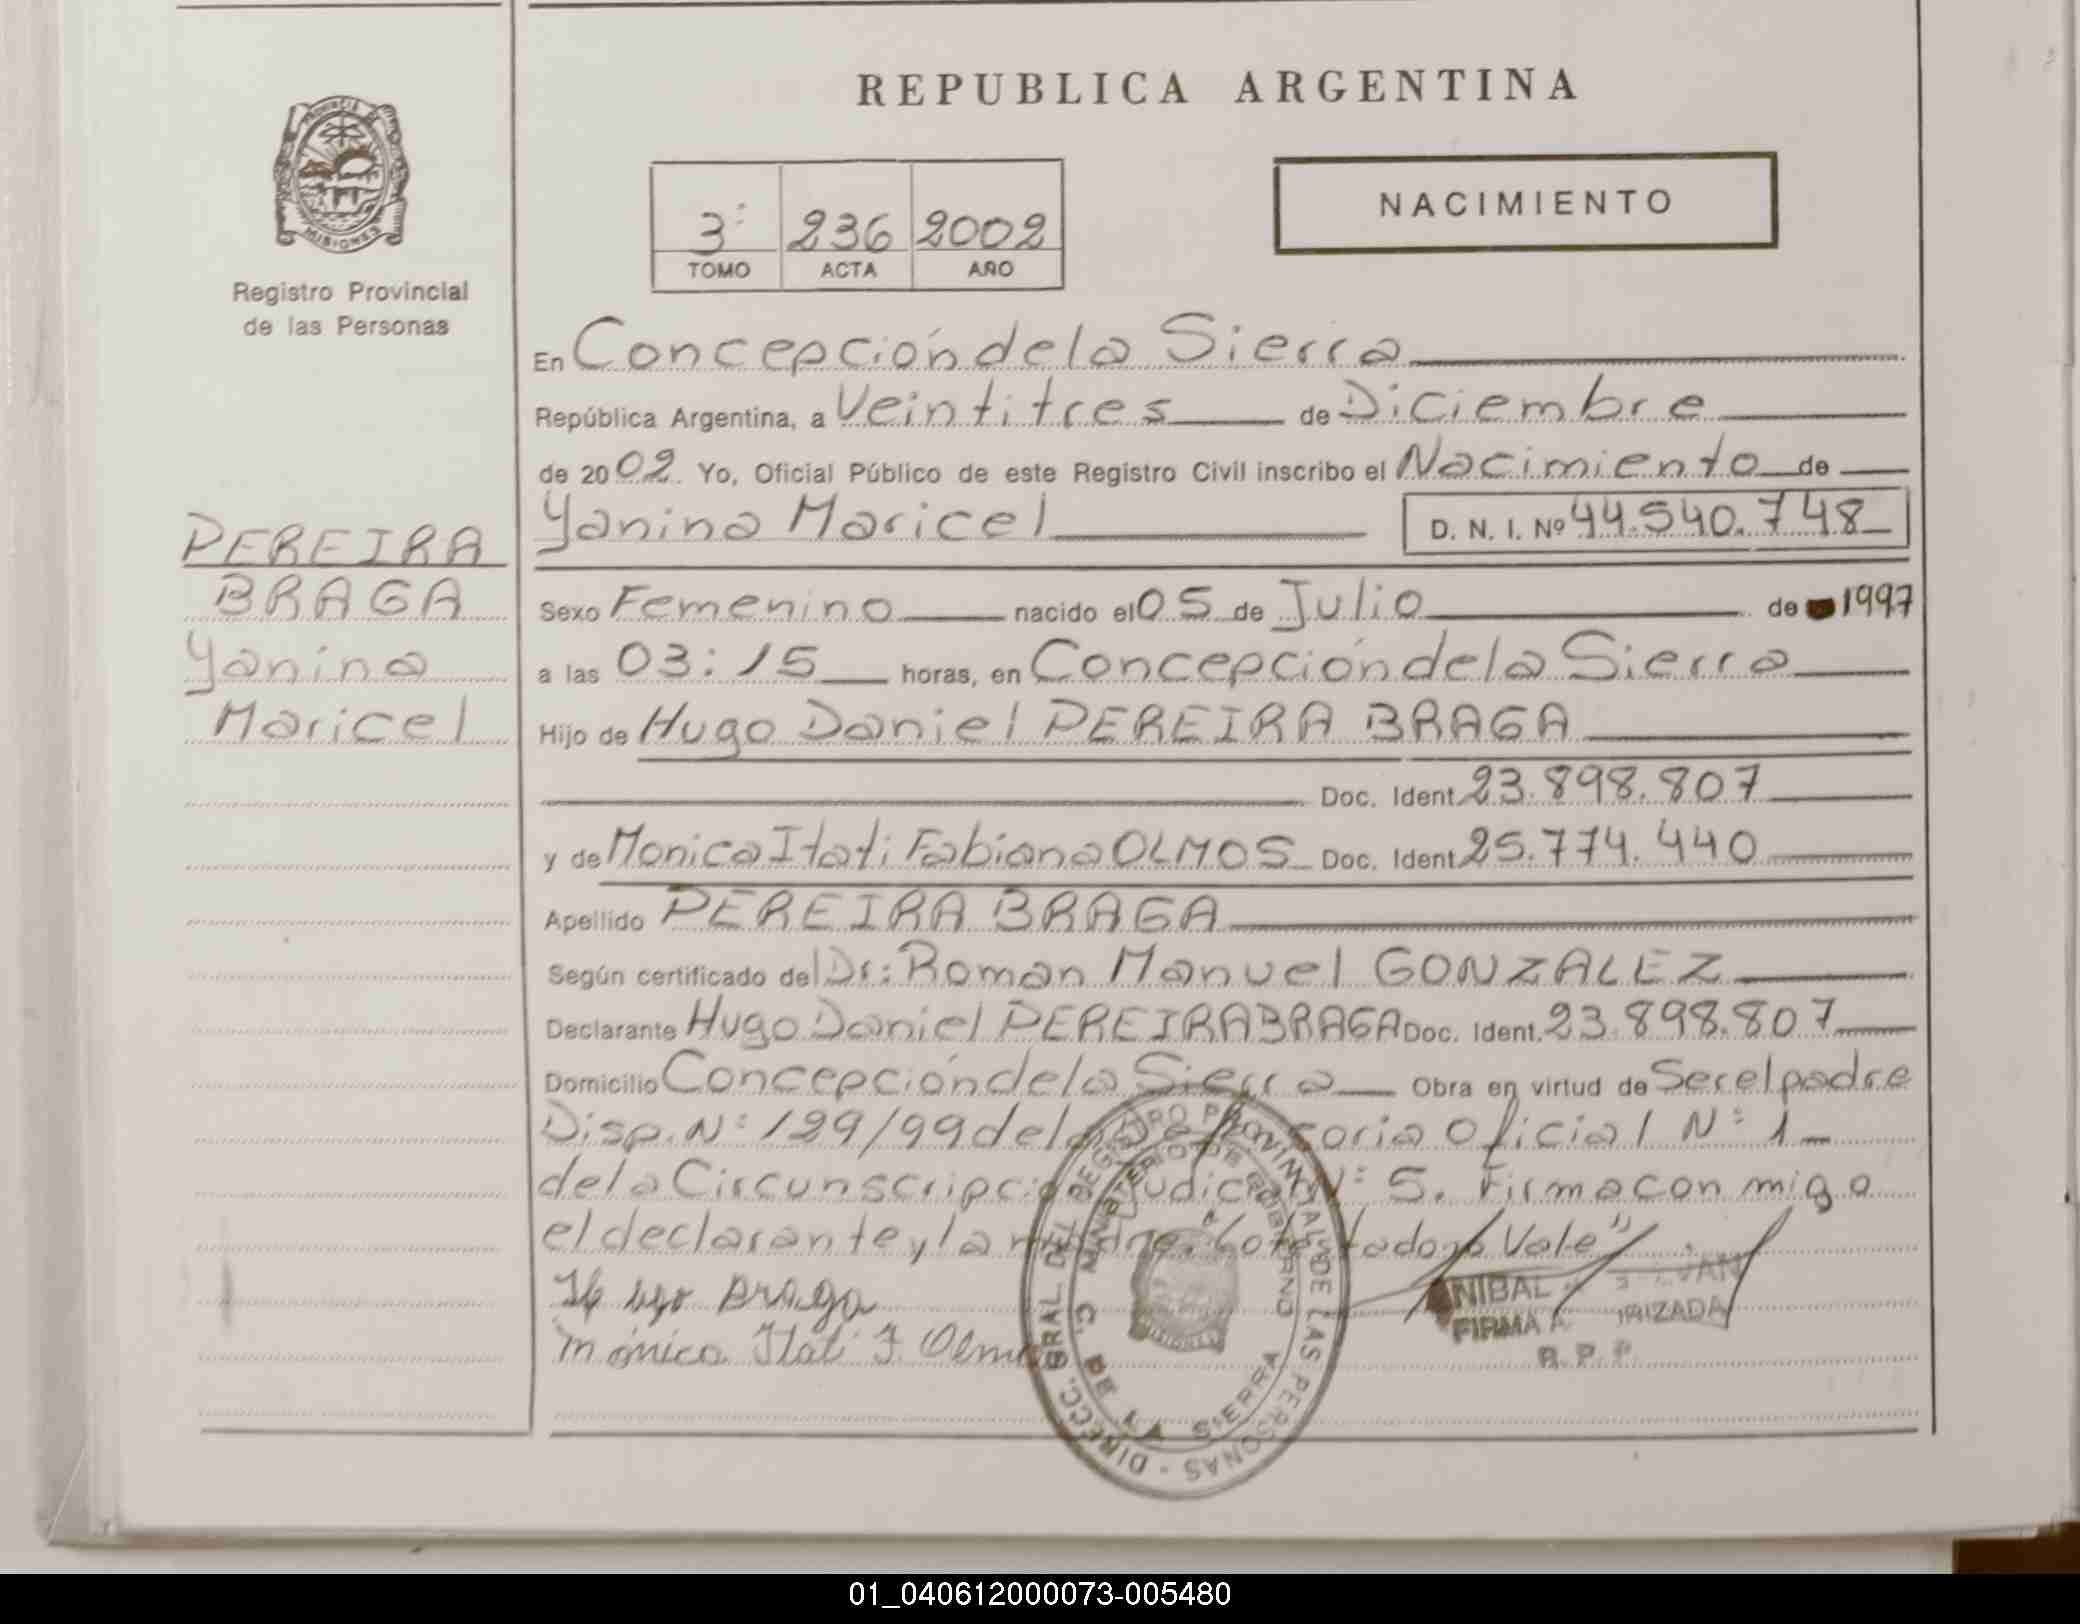 REPUBLICA ARGENTINA
PROVINCIA DE
MISIONES
Registro Provincial
de las Personas
NACIMIENTO
3º 236 2002
TOMO ACTA AÑO
En Concepción de la Sierra
República Argentina, a Veintitres de Diciembre
de 2002. Yo, Oficial Público de este Registro Civil inscribo el Nacimiento de
Yanina Maricel D. N. I. Nº 44.540.748
PEREIRA
BRAGA
Yanina
Maricel
Sexo Femenino nacido el 05 de Julio de 1997
a las 03:15 horas, en Concepción de la Sierra
Hijo de Hugo Daniel PEREIRA BRAGA
Doc. Ident. 23.898.807
y de Monica Itati Fabiana OLMOS Doc. Ident. 25.774.440
Apellido PEREIRA BRAGA
Según certificado del Dr: Roman Manuel GONZALEZ
Declarante Hugo Daniel PEREIRA BRAGA Doc. Ident. 23.898.807
Domicilio Concepción de la Sierra Obra en virtud de Ser el padre
Disp. Nº 129/99 de la Oficial Nº 1
de la Circunscripción Judicial Nº 5. Firma con migo
el declarante y la madre. Vale"
Hugo Braga
Mónica Itati F. Olmos
DIRECC. GRAL. DEL REGISTRO PROVINCIAL DE LAS PERSONAS
MINISTERIO DE GOBIERNO
C. DE LA SIERRA
NIBAL
FIRMA
R. P. P.
01_040612000073-005480